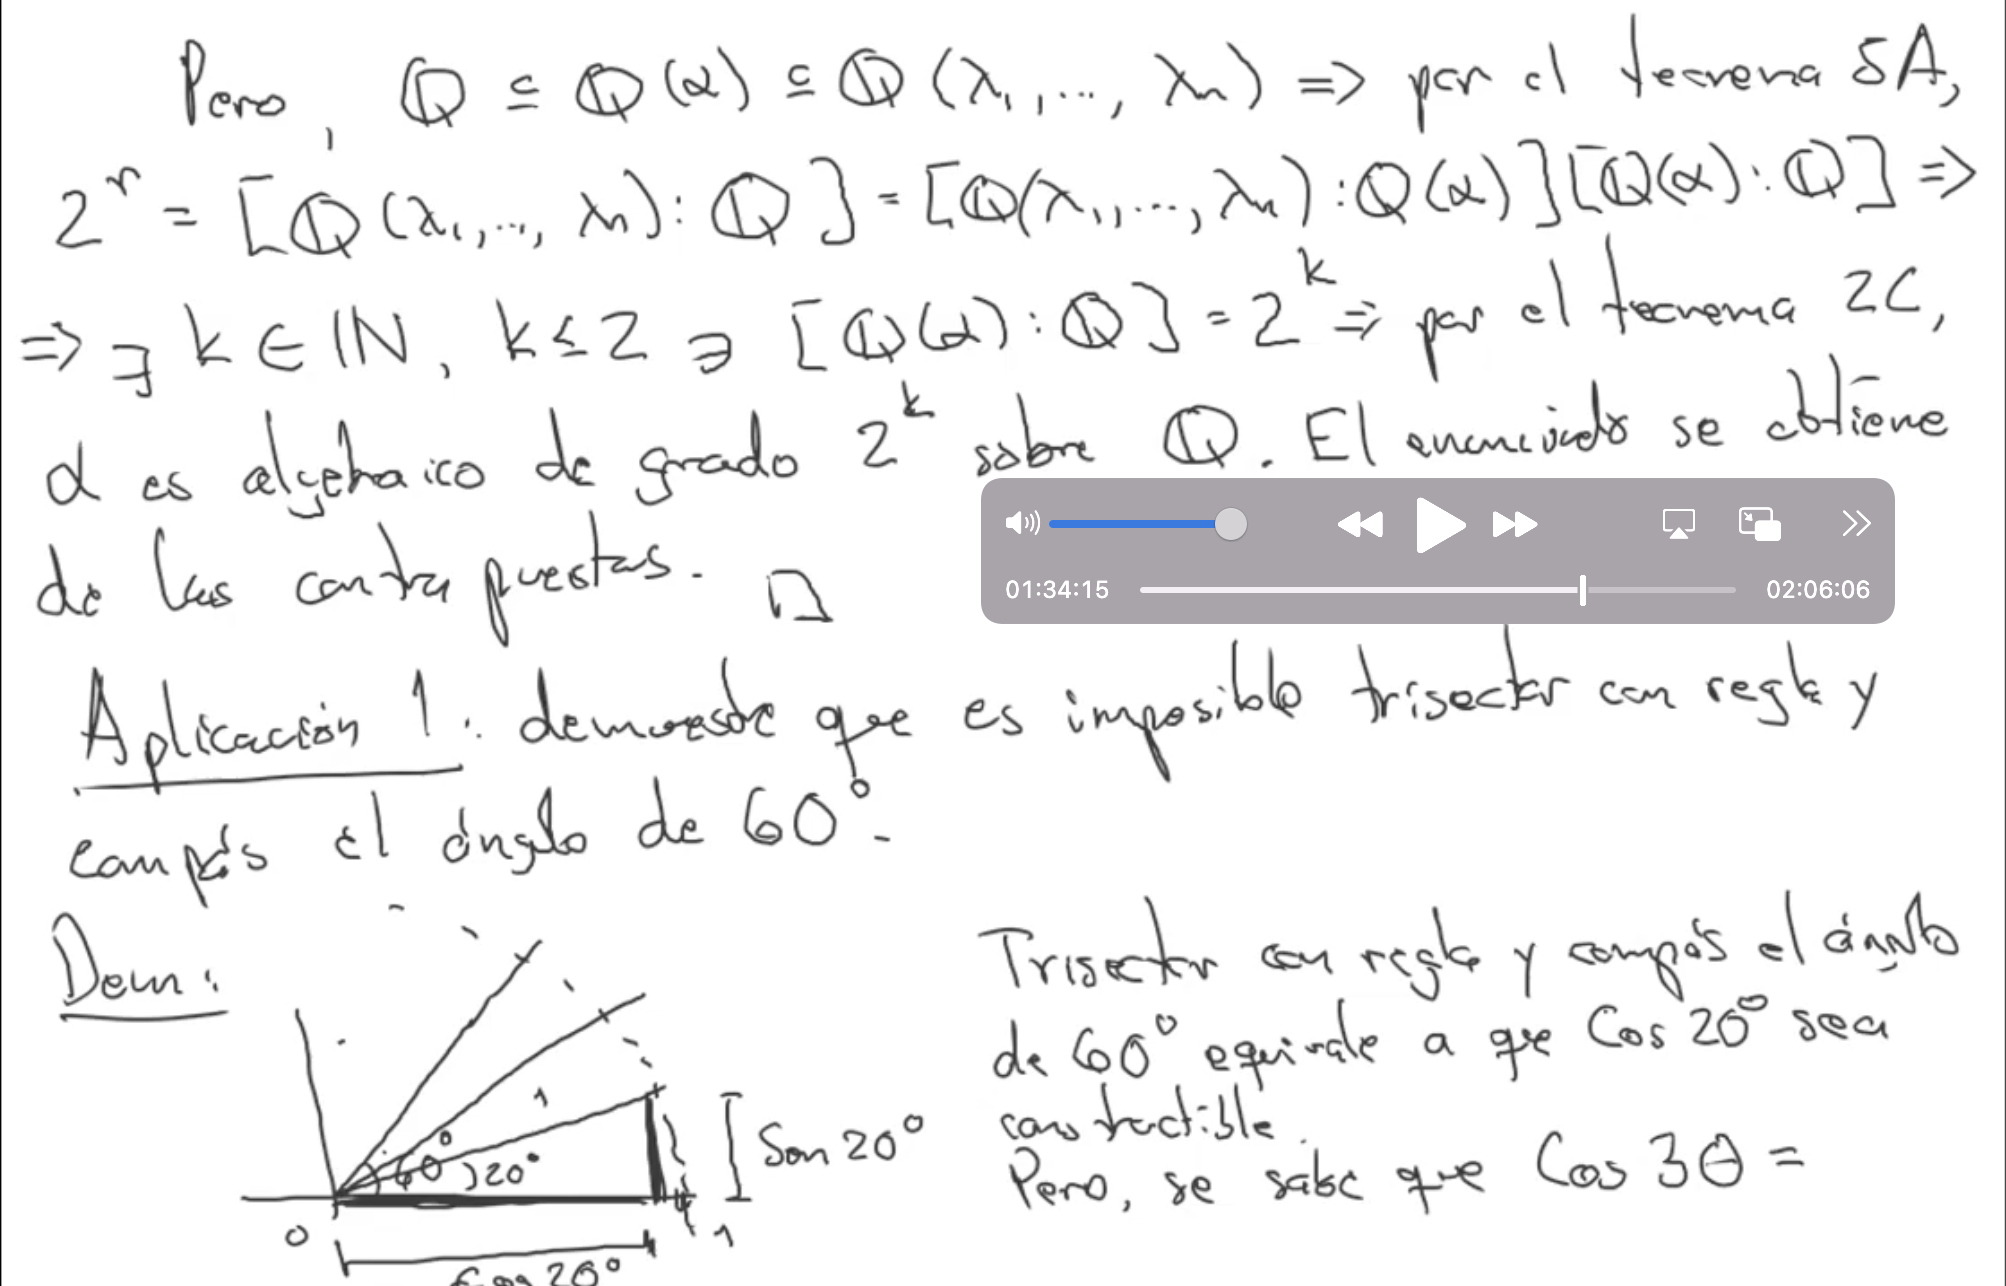 Pero, ℚ ⊆ ℚ(α) ⊆ ℚ(λ₁,..., λₙ) => por el teorema 5A,
2ʳ = [ℚ(λ₁,..., λₙ): ℚ] = [ℚ(λ₁,..., λₙ): ℚ(α)][ℚ(α): ℚ] =>
=> ∃ k ∈ ℕ, k ≤ 2 ∋ [ℚ(α): ℚ] = 2ᵏ => por el teorema 2C,
α es algebraico de grado 2ᵏ sobre ℚ. El enunciado se obtiene
de las contrapuestas. □
01:34:15 02:06:06
Aplicación 1: demuestre que es imposible trisectar con regla y
compás el ángulo de 60°.
Dem:
Trisectar con regla y compás el ángulo
de 60° equivale a que Cos 20° sea
constructible.
Pero, se sabe que Cos 3θ =
1
60° 20°
Sen 20°
0 1
Cos 20°